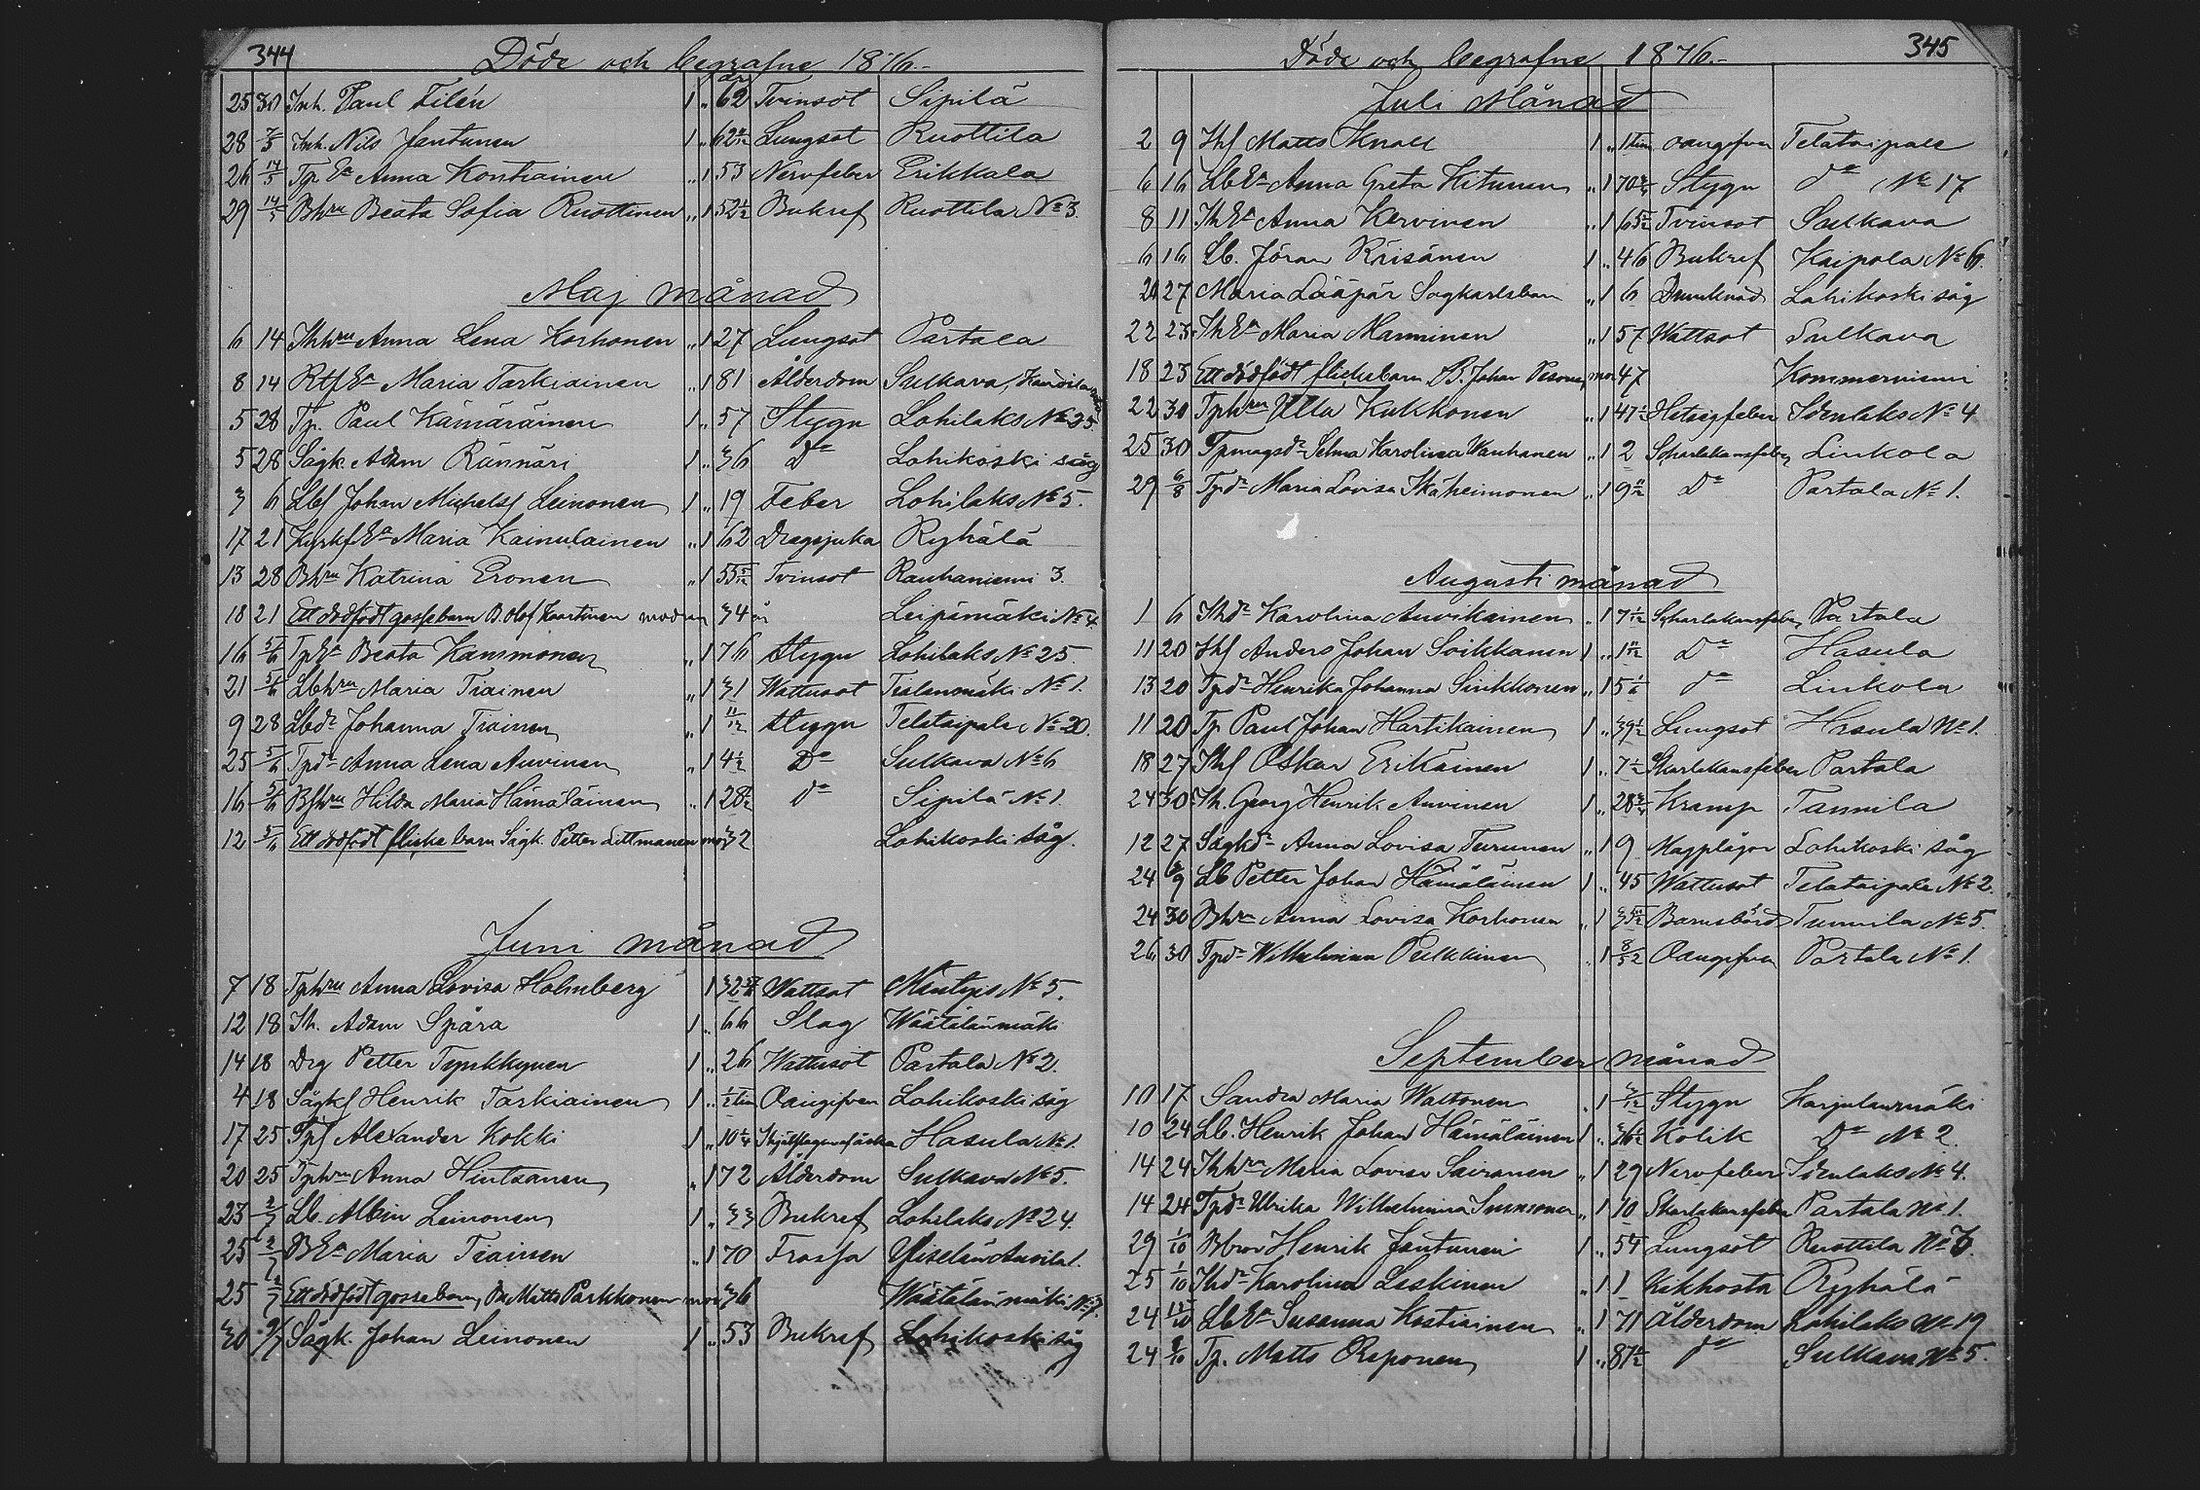 344
Döde och begrafne 1876.-
25 30 Inh. Paul Filén 1 „ 62 Tvinsot Sipilä
28 7/5 Inh. Nils Jantunen 1 „ 62 Lungsot Ruottila
26 14/5 Tp Ea Anna Kontiainen „ 1 53 Nervfeber Erikkala
29 14/5 Bhru Beata Sofia Ruottinen „ 1 52 1/2 Bukref Ruottila No 3.
Maj månad
6 14 Ihhru Anna Lena Korhonen „ 1 27 Lungsot Partala
8 14 Rtf Ea Maria Tarkiainen „ 1 81 Ålderdom Sulkava,
5 28 Tp. Paul Kämäräinen 1 „ 57 Stygn Lohilaks No 25.
5 28 Sågk. Adam Rännäri 1 „ 36 Do Lohikoski såg
3 6 Lbf Johan Michelsf Leinonen 1 „ 19 Feber Lohilaks No 5.
17 21 Kyrkf Ea Maria Kainulainen „ 1 62 Dragsjuka Ryhälä
13 28 Bhru Katrina Eronen „ 1 55 5/12 Tvinsot Rauhaniemi 3.
18 21 Ett dödfödt gossebarn B. Olof Kaartinen modren 34 år Leipämäki No 4.
16 5/6 Tp Ea Beata Kammonen „ 1 76 Stygn Lohilaks No 25.
21 5/6 Lbhru Maria Tiainen „ 1 31 Wattusot Tialanmäki No 1.
9 28 Lbdr Johanna Tiainen „ 1 11/12 Stygn Telataipale No 20.
25 5/6 Tpdr Anna Lena Auvinen „ 1 4 1/2 Do Sulkava No 6
16 5/6 Bfhru Hilda Maria Hämäläinen „ 1 28 do Sipilä No 1.
12 5/6 Ett dödfödt flicke barn Sågk. Petter Littmanen mor 32 Lohikoski såg.
Juni månad
7 18 Tphru Anna Lovisa Holmberg 1 32 Wattsot Mäntyjs No 5.
12 18 Ih. Adam Spåra 1 „ 66 Slag Wäätälänmäki
14 18 Drg Petter Tynkkynen 1 „ 26 Wattusot Partala No 2.
4 18 Sågkf Henrik Tarkiainen 1 „ 1/2 tim Oangifven Lohikoski såg
17 25 Tpf Alexander Kokki 1 „ 10 1/4 Hasula No 1.
20 25 Tphru Anna Hintsanen „ 1 72 Ålderdom Sulkava No 5.
23 2/7 Lb. Albin Leinonen 1 „ 33 Bukref Lohilaks No 24.
25 2/7 B Ea Maria Tiainen „ 1 70 Frossa
25 2/7 Ett dödfödt gossebarn, Dr Matts Parkkonen mor 36 Wäätälänmäki No 7.
30 9/7 Sågk. Johan Leinonen 1 „ 53 Bukref Lohikoski såg
345
Döde och begrafne 1876.-
Juli Månad
2 9 Ihf Matts Knall 1 „ 1 tim oangifven Telataipale
6 16 Lb Ea Anna Greta Hitunen „ 1 70 Stygn do No 17
8 11 Ih Ea Anna Kervinen „ 1 65 Tvinsot Sulkava
6 16 Lb. Jöran Räisänen 1 „ 46 Bukref Kaipola No 6.
24 27 Maria Lääpär Sågkarlsbarn „ 1 6 Drunknad Lohikoski såg
22 23 Ih Ea Maria Manninen „ 1 57 Wattsot Sulkava
18 23 Ett dödfödt flickebarn B. Johan Pesonen, mor 47 Kommerniemi
22 30 Tphru Ulla Kukkonen „ 1 47 Hetsigfeber Idenlaks No 4
25 30 Tpmagsdr Selma Karolina Wauhanen „ 1 2 Scharlakansfeber Linkola
29 6/8 Tpdr Maria Lovisa Ikäheimonen „ 1 9 Do Partala No 1.
Augusti månad
1 6 Ihdr Karolina Auvikainen „ 1 7 1/12 Scharlakansfeber Partala
11 20 Ihf Anders Johan Soikkanen 1 „ 1 Do Hasula
13 20 Tpdr Henrika Johanna Sirkkonen „ 1 5 1/6 do Linkola
11 20 Tp Paul Johan Hartikainen 1 „ 39 1/2 Lungsot Hasula No 1.
18 27 Ihf Oskar Erikäinen 1 „ 7 1/2 Skarlakansfeber Partala
24 30 Ih. Georg Henrik Auvinen 1 „ 28 3/4 Kramp Tammila
12 27 Sågkdr Anna Lovisa Turunen „ 1 9 Magplågor Lohikoski såg
24 3/9 Lb Petter Johan Hämäläinen 1 „ 45 Wattusot Telataipale No 2.
24 30 Bhru Anna Lovisa Korhonen „ 1 35 Barnsbörd Tunnila No 5.
26 30 Tpdr Wilhelmina Pulkkinen „ 1 Oangifven Partala No 1.
September månad
10 17 Sandra Maria Waltonen „ 1 3/12 Stygn Harjulanmäki
10 24 Lb. Henrik Johan Hämäläinen 1 „ 36 1/2 Kolik Do No 2.
14 24 Ihhru Maria Lovisa Sairanen „ 1 29 Nervfeber Idenlaks No 4.
14 24 Tpdr Ulrika Wilhelmina Immonen „ 1 10 Skarlakansfeber Partala No 1.
29 1/10 Bbror Henrik Jantunen 1 „ 54 Lungsot Ruottila No 6.
25 1/10 Ihdr Karolina Leskinen „ 1 1 Kikhosta Ryhälä
24 15/10 Lb Ea Susanna Kostiainen „ 1 71 Ålderdom Lohilaks No 19
24 8/10 Tp. Matts Reponen 1 „ 87 1/2 do Sulkava No 5.